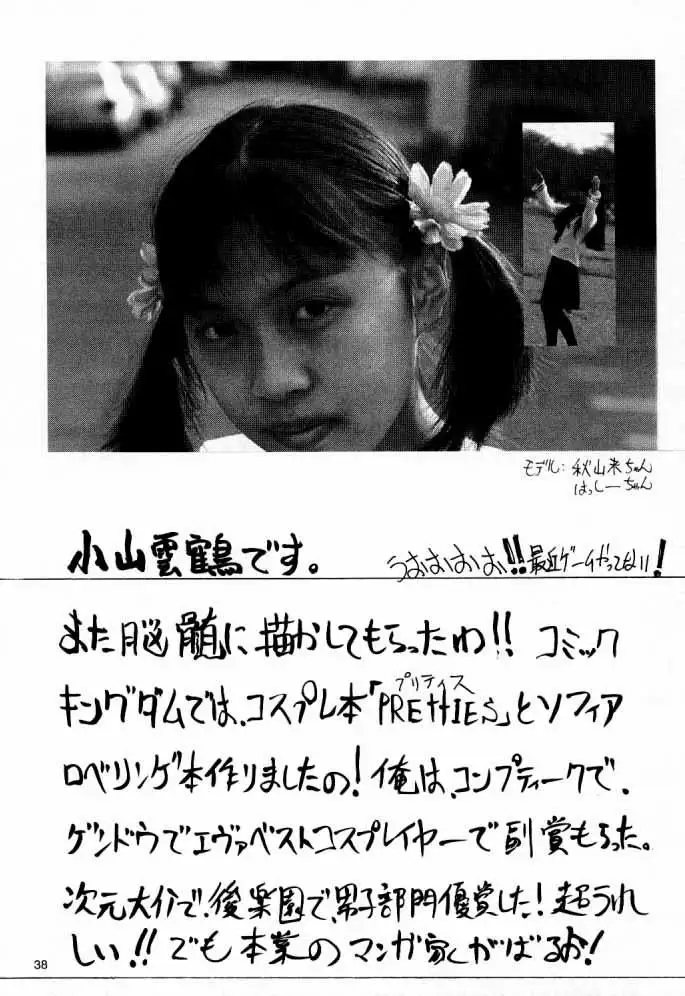 モデル:秋山来ちゃん
はっしーちゃん
小山雲鶴です。
うおおおお!!最近ゲームやってない!
また脳髄に描かしてもらったわ!!コミック
プリティス
キングダムでは、コスプレ本「PRETTIES」とソフィア
ロベリンゲ本作りましたの!俺は、コンプティークで、
ゲンドウでエヴァベストコスプレイヤーで副賞もらった。
次元大介で、後楽園で、男子部門優賞した!超うれ
しい!!でも本業のマンガ家くがばるお!
38